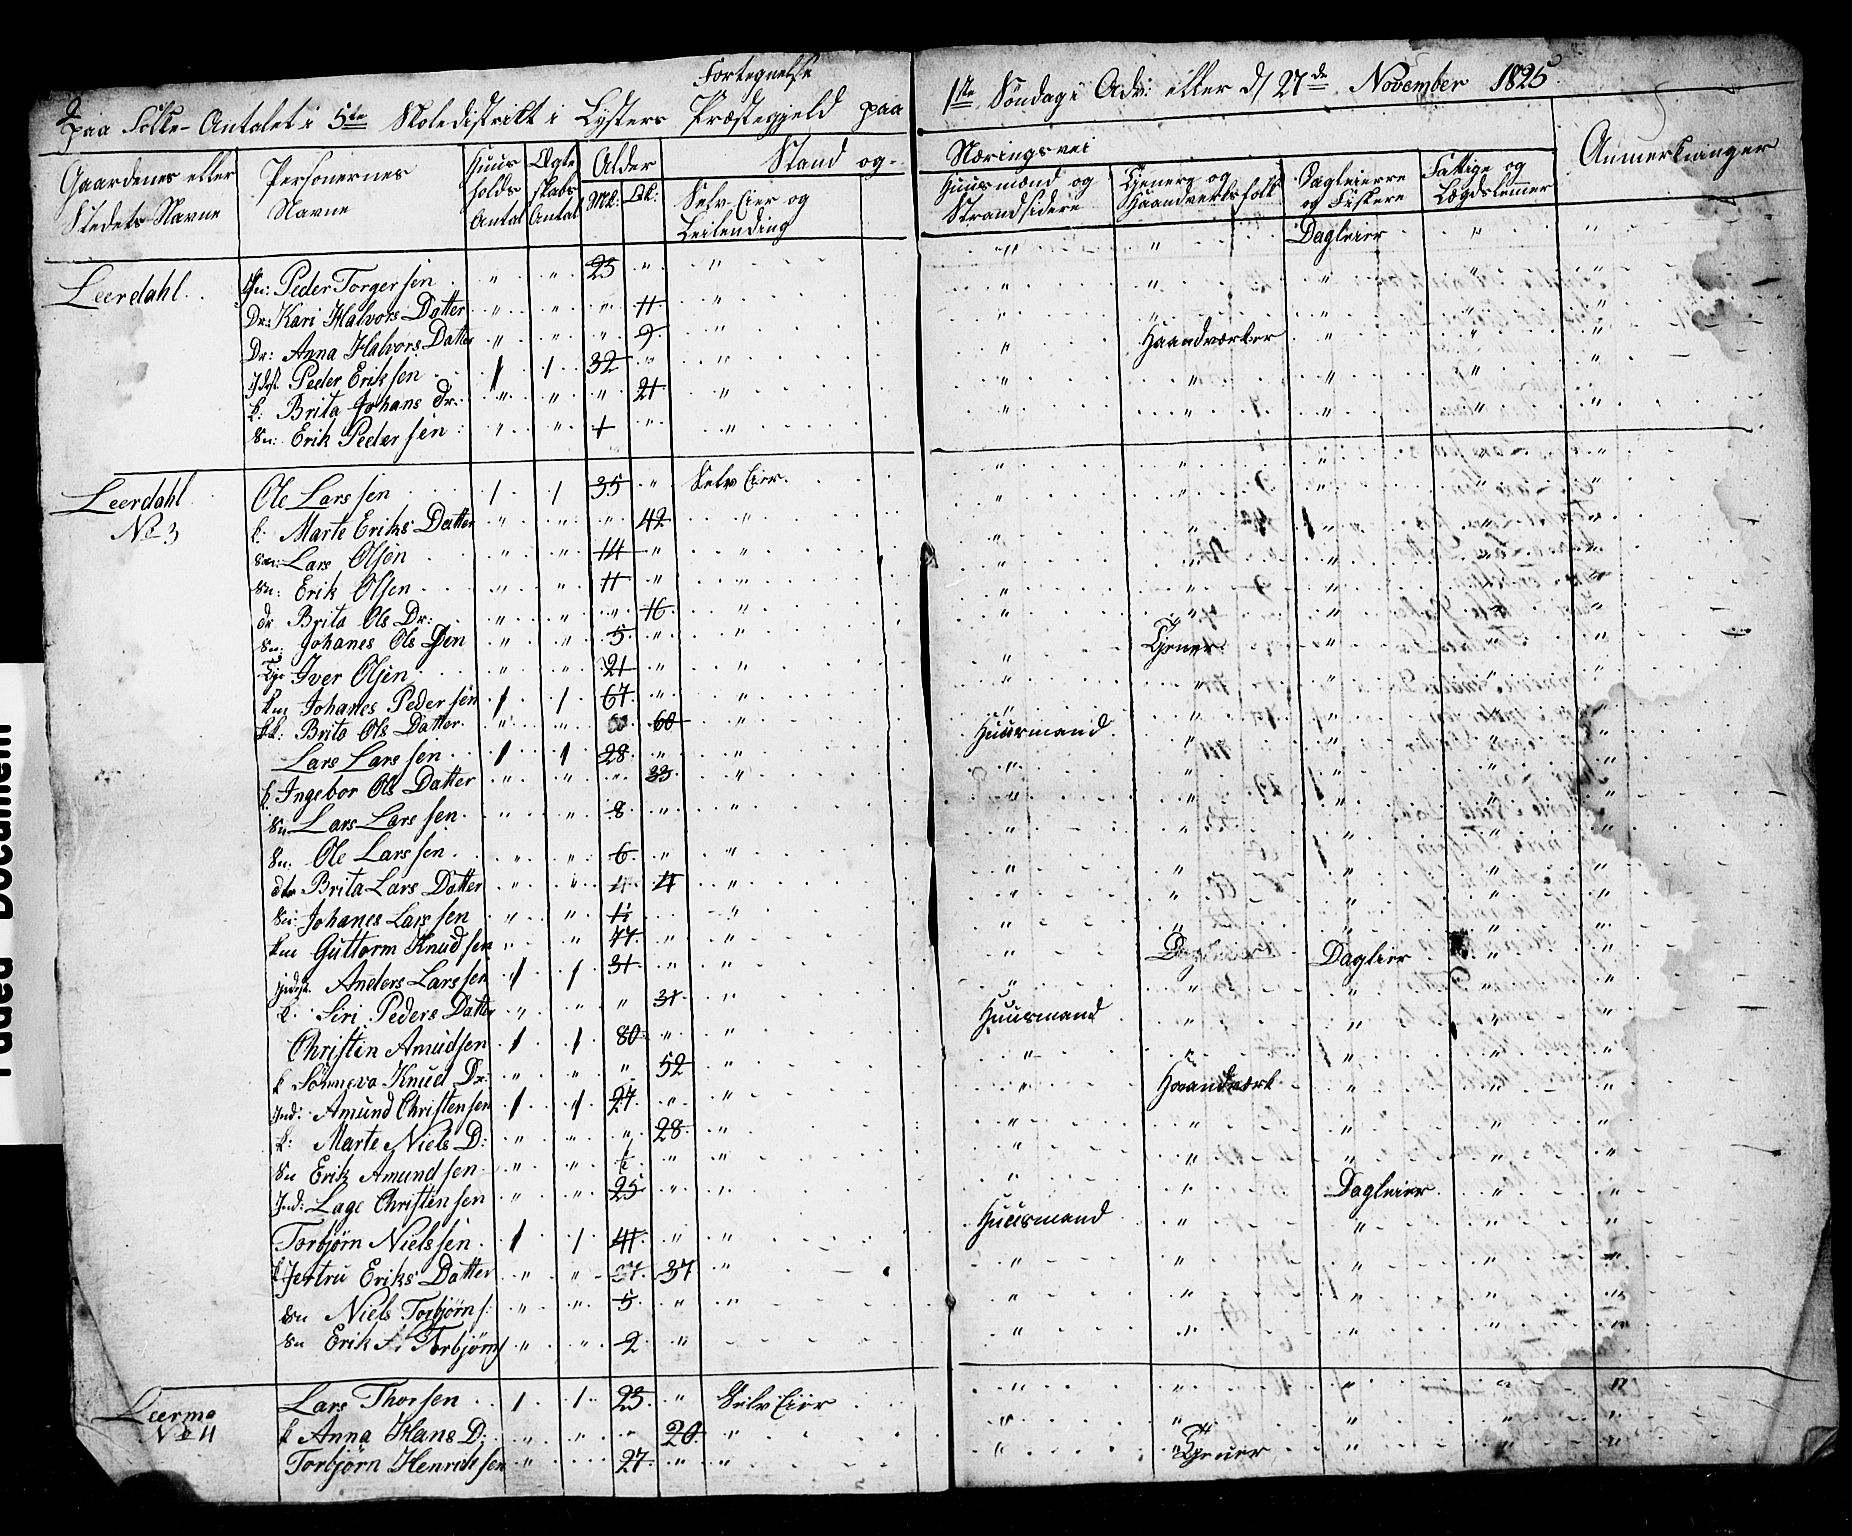 Fortegnelse
paa Folke-Antalet i 5te Skoledistrikt i Lysters Præstegjeld paa 1ste Søndag i Adv: eller d 27de November 1825
Gaardenes eller Stedets Navne
Personernes Navne
Huus holds Antal
Ægte skabs Antal
Alder
Mk: Qk:
Stand og
Selv Eier og Leilending
Næringsvei
Huusmænd og Strandsidere
Tjenere og Haandverksfolk
Dagleiere og Fiskere
Fattige og Lægdslemer
Anmerkninger
Leerdahl Sn: Peder Torgersen " " 25 " " " " Dagleier " "
Dr: Kari Halvors Datter " " " 11 "
Dr: Anna Halvors Datter " " " 9 "
Indst Peder Eriksen 1 1 32 " " " Haandværker " "
k: Brita Johans Dr: " " " 21 "
Sn: Erik Pedersen " " 1 " "
Leerdahl No 3 Ole Larssen 1 1 35 " Selv Eier
k. Marte Eriks Datter " " " 42 "
Sn: Lars Olsen " " 14 " "
Sn: Erik Olsen " " 11 " "
dr Brita Ols Dr: " " " 16 "
Sn: Johanes Ols Søn " " 5 " "
Tje Iver Olsen " " 21 " " " Tjener
km Johanes Pedersen 1 1 67 " "
kk: Brita Ols Datter " " 60 "
Lars Larssen 1 1 28 " " Huusmand
k Ingebor Ols Datter " " " 33 "
Sn Lars Larssen " " 8 " "
Sn. Ole Larssen " " 6 " "
dtr Brita Lars Datter " " 4 "
Sn: Johanes Larssen " "
km Guttorm Knudsen " " 77 " " Daglier
Indst. Anders Larssen 1 1 31 " "
k. Siri Peders Datter " " " 31 "
Christen Amudsen 1 1 80 " " Huusmand
k Sønneva Knud Dr. " " " 52 "
Ind: Amund Christensen 1 1 24 " " " Haandværk
k: Marte Niels D: " " " 28 "
Sn Erik Amundsen " " " "
Ind: Lage Christensen " " 25 " " " " Dagleier
Torbjørn Nielssen 1 1 41 " " Huusmand
k Jertru Eriks Datter " " 37 "
Sn Niels Torbjørns: " " 5 " "
Sn Erik Torbjørns " " 2 "
Leermo No 4 Lars Thorsen 1 1 23 " Selv Eier
k Anna Hans D: " " " 20 "
Torbjørn Henriksen " 27 " " " Tjener